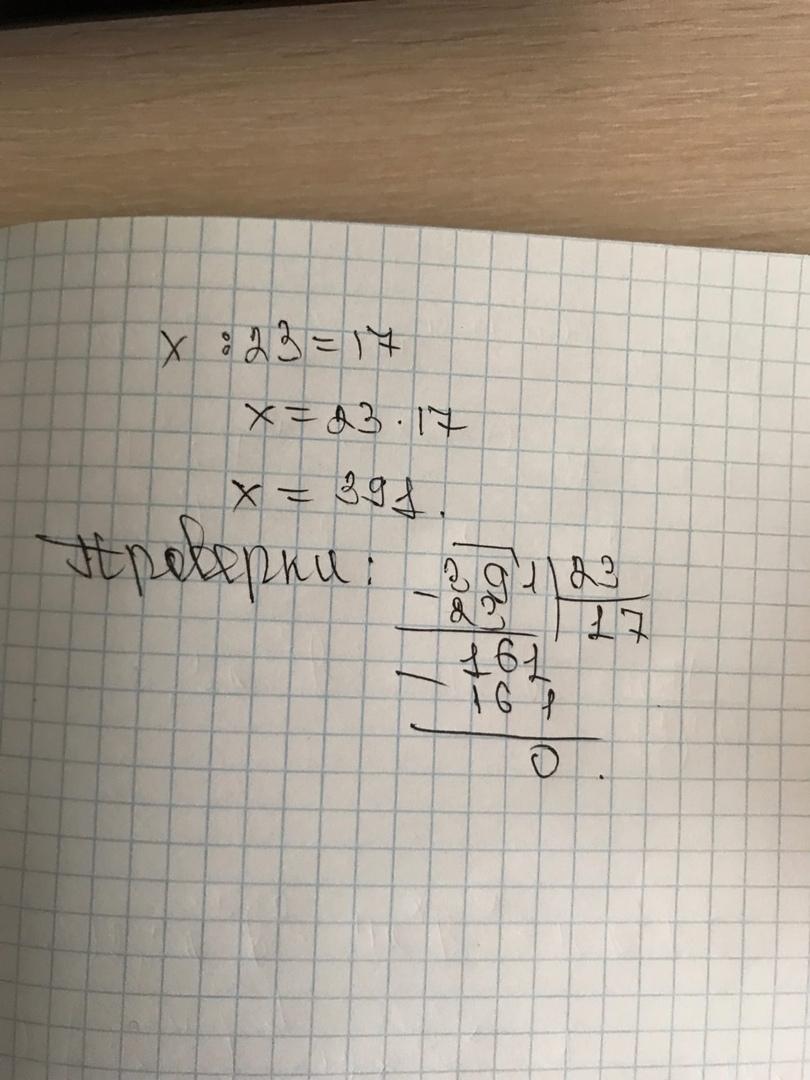 x : 23 = 17
x = 23 · 17
x = 391.
Проверки:
391 | 23
- 23 | 17
161
- 161
0.